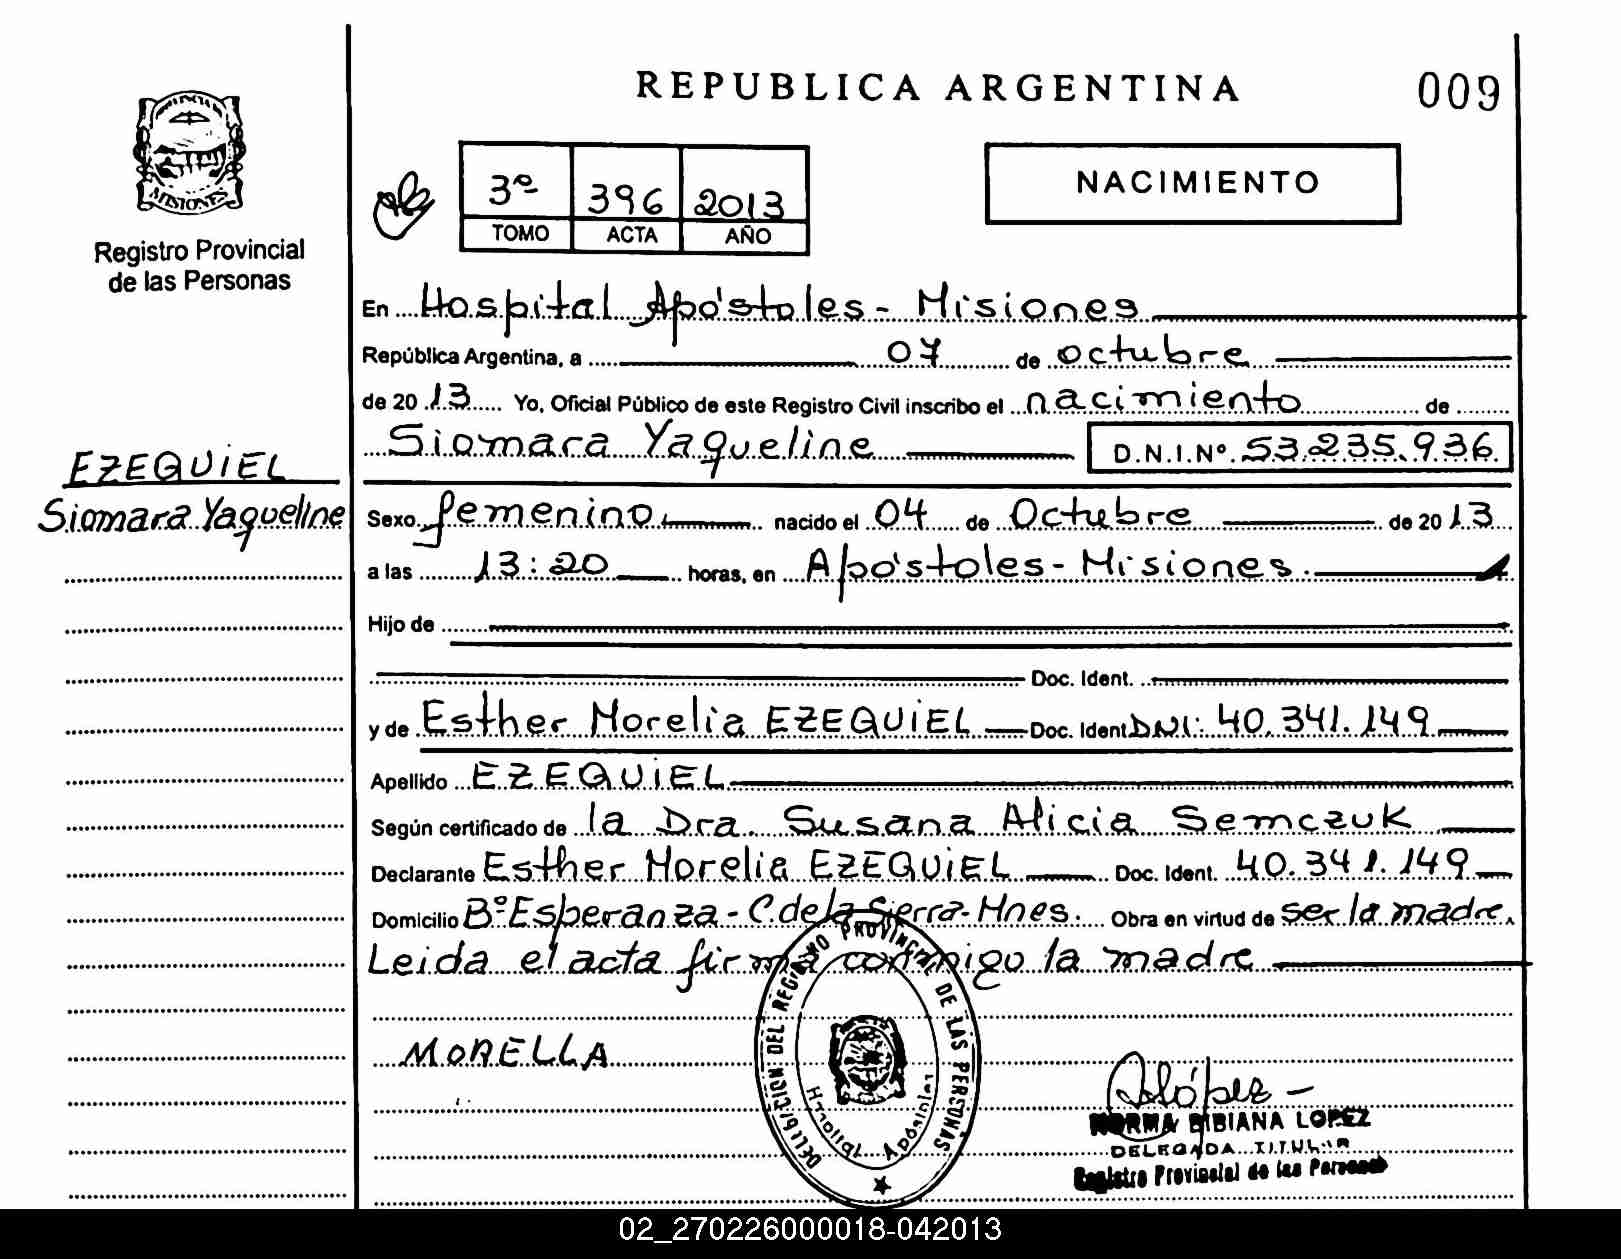 REPUBLICA ARGENTINA
009
MISIONES
Registro Provincial
de las Personas
3º 396 2013
TOMO ACTA AÑO
NACIMIENTO
En Hospital Apóstoles - Misiones
República Argentina, a 07 de octubre
de 2013 Yo, Oficial Público de este Registro Civil inscribo el nacimiento de
Siomara Yaqueline D.N.I.Nº. 53.235.936
EZEQUIEL
Siomara Yaqueline
Sexo femenino nacido el 04 de Octubre de 2013
a las 13:20 horas, en Apóstoles - Misiones.
Hijo de
Doc. Ident.
y de Esther Morelia EZEQUIEL Doc. Ident DNI: 40.341.149
Apellido EZEQUIEL
Según certificado de la Dra. Susana Alicia Semczuk
Declarante Esther Morelia EZEQUIEL Doc. Ident. 40.341.149
Domicilio Bº Esperanza - C. de la Sierra - Mnes. Obra en virtud de ser la madre.
Leida el acta firma conmigo la madre
MORELLA
DELEGACION DEL REGISTRO PROVINCIAL DE LAS PERSONAS
Hospital Apóstoles
López
NORMA BIBIANA LOPEZ
DELEGADA TITULAR
Registro Provincial de las Personas
02_270226000018-042013